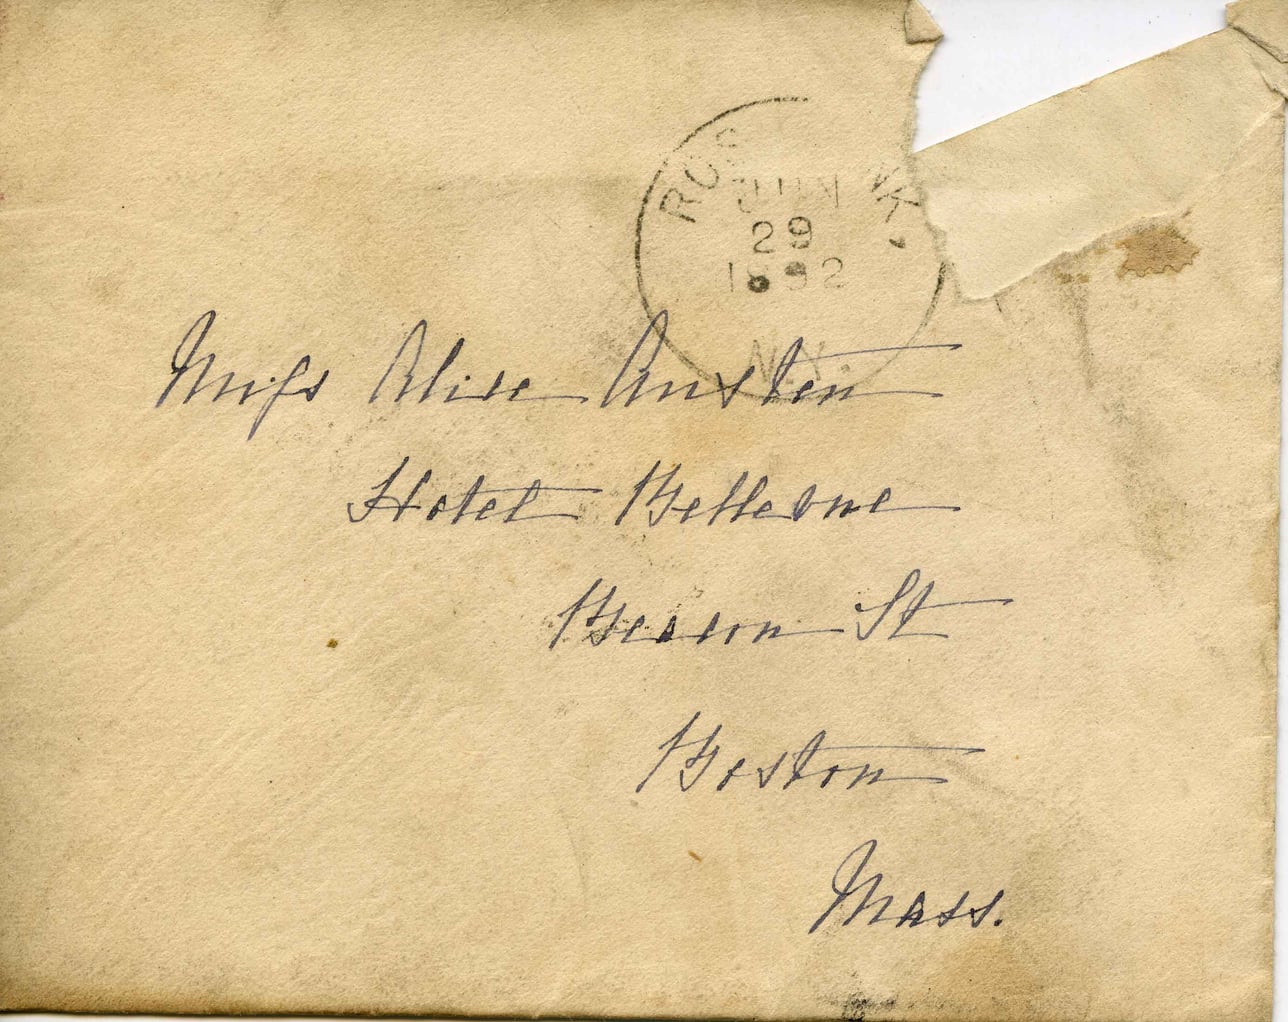 JUN
29
1892
N.Y.
Miss Alice Austen
Hotel Bellevue
Beacon St
Boston
Mass.